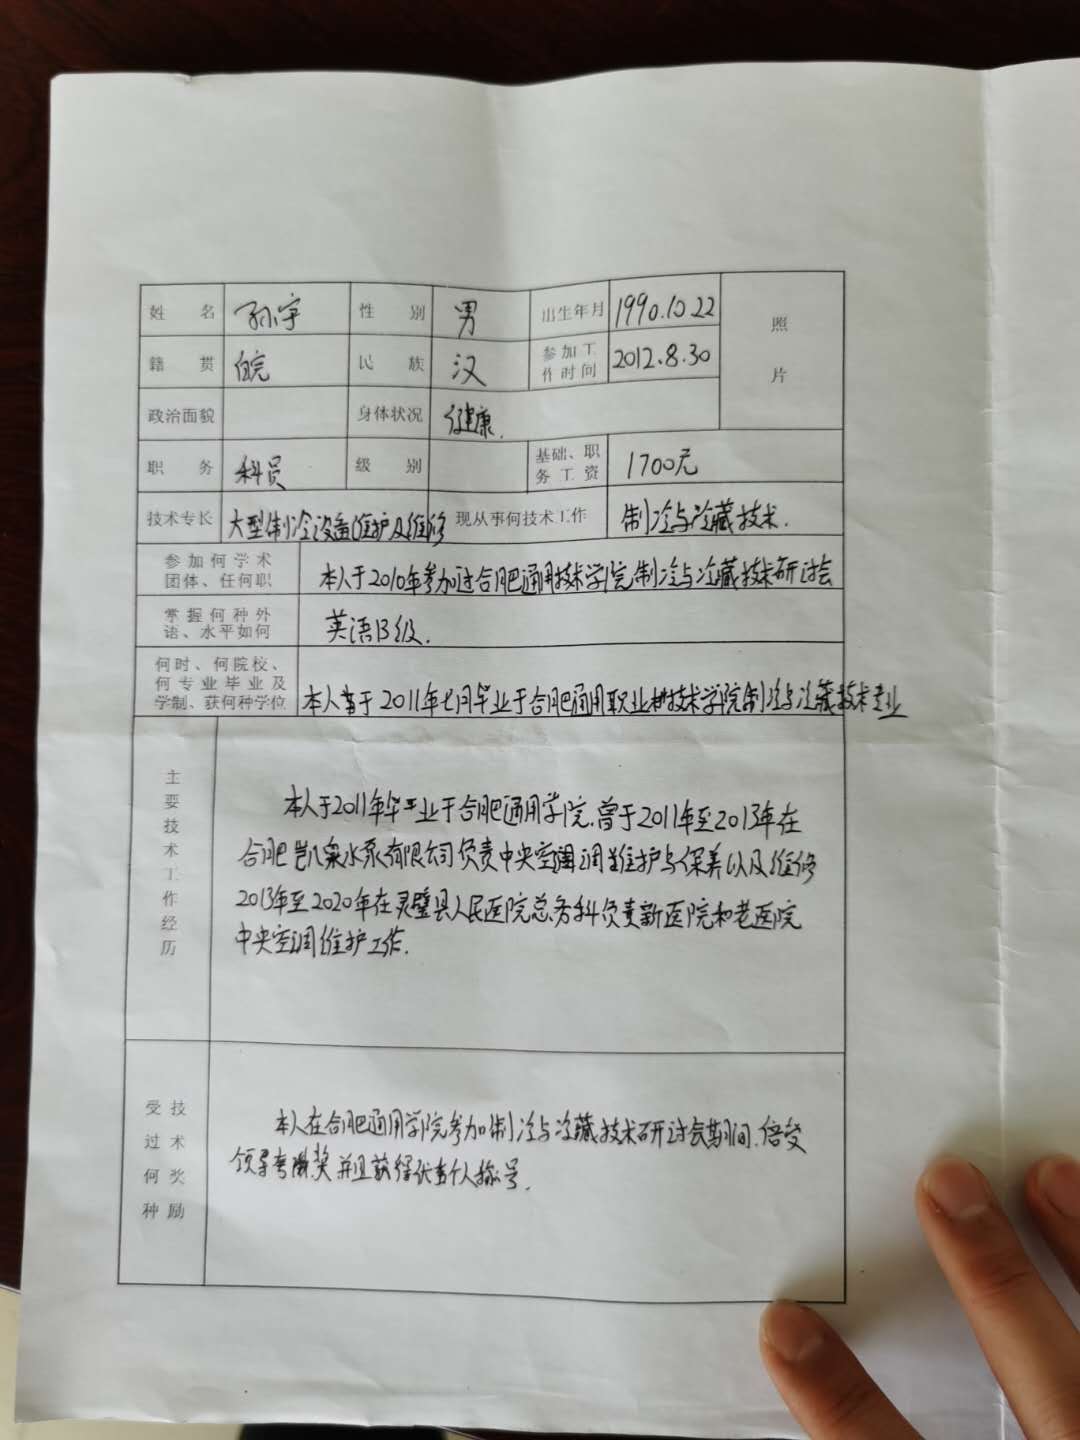 姓名 孙宇 性别 男 出生年月 1990.10.22 照片
籍贯 皖 民族 汉 参加工作时间 2012.8.30
政治面貌 身体状况 健康.
职务 科员 级别 基础、职务工资 1700元
技术专长 大型制冷设备维护及维修 现从事何技术工作 制冷与冷藏技术.
参加何学术
团体、任何职 本人于2010年参加过合肥通用技术学院制冷与冷藏技术研讨会
掌握何种外
语、水平如何 英语B级.
何时、何院校、
何专业毕业及
学制、获何种学位 本人于2011年七月毕业于合肥通用职业技术学院制冷与冷藏技术专业
主要技术工作经历
本人于2011年毕业于合肥通用学院.曾于2011年至2013年在
合肥凯泉水泵有限公司负责中央空调维护与保养以及维修
2013年至2020年在灵璧县人民医院总务科负责新医院和老医院
中央空调维护工作.
受过何种技术奖励
本人在合肥通用学院参加制冷与冷藏技术研讨会期间.倍受
领导夸奖并且获得优秀个人称号.